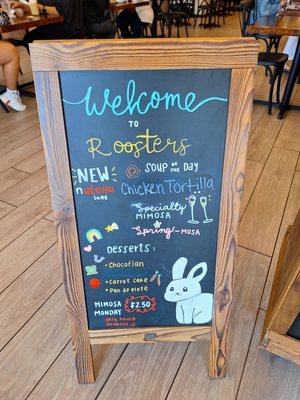 Welcome
TO
Roosters
NEW
nutella
SOUP OF THE DAY
CHICKEN TORTILLA
Specialty
MIMOSA
Spring-MOSA
DESSERTS:
• Chocoflan
• Carrot Cake
• Pan de elote
MIMOSA
MONDAY
$2.50